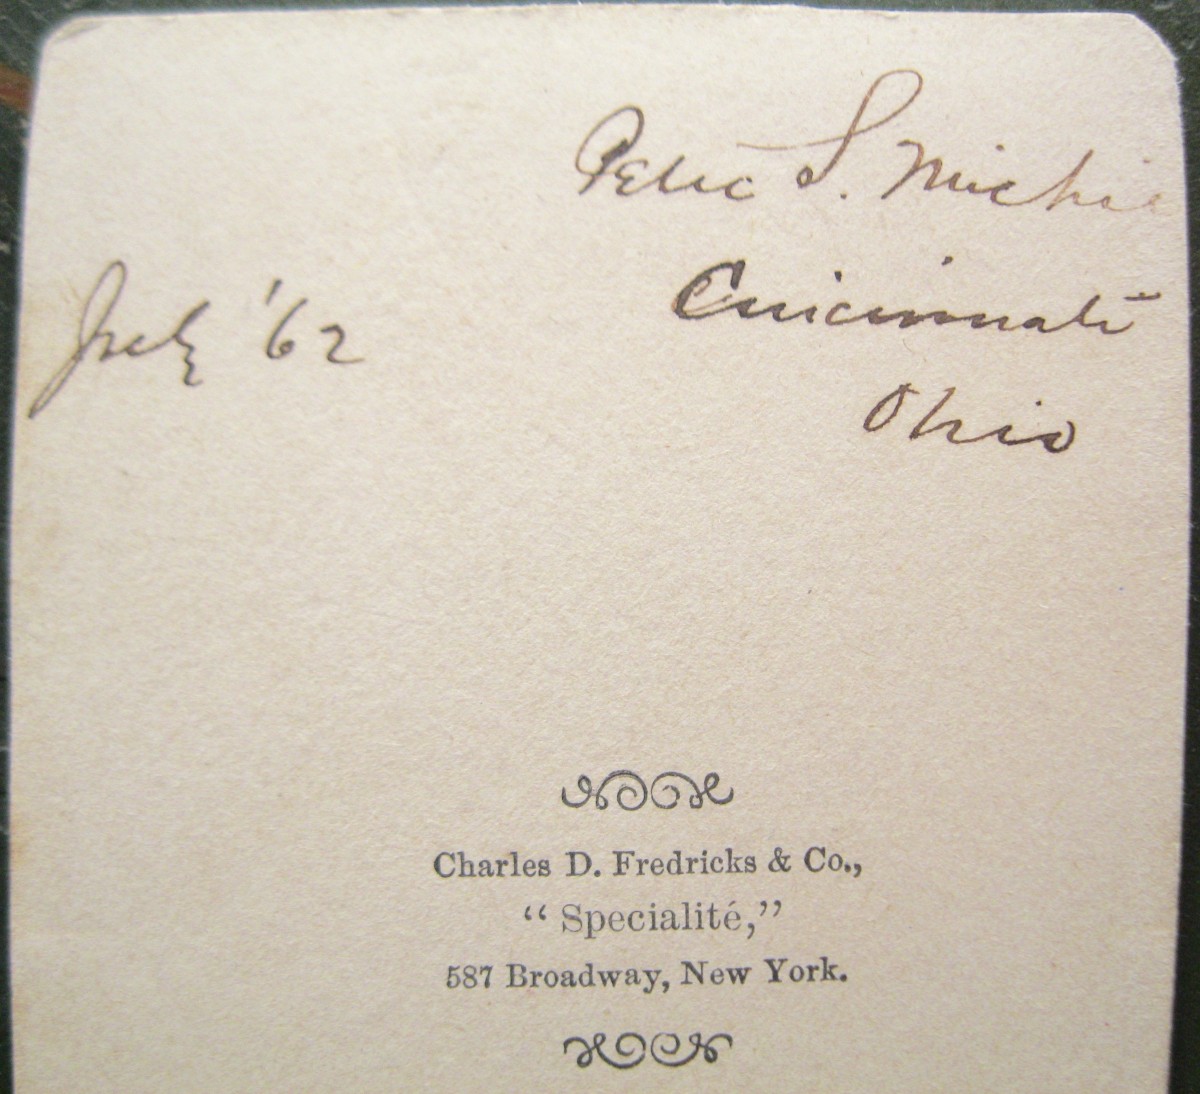 Peter S. Michie
July '62
Cincinnati
Ohio
Charles D. Fredricks & Co.,
“ Specialité,”
587 Broadway, New York.